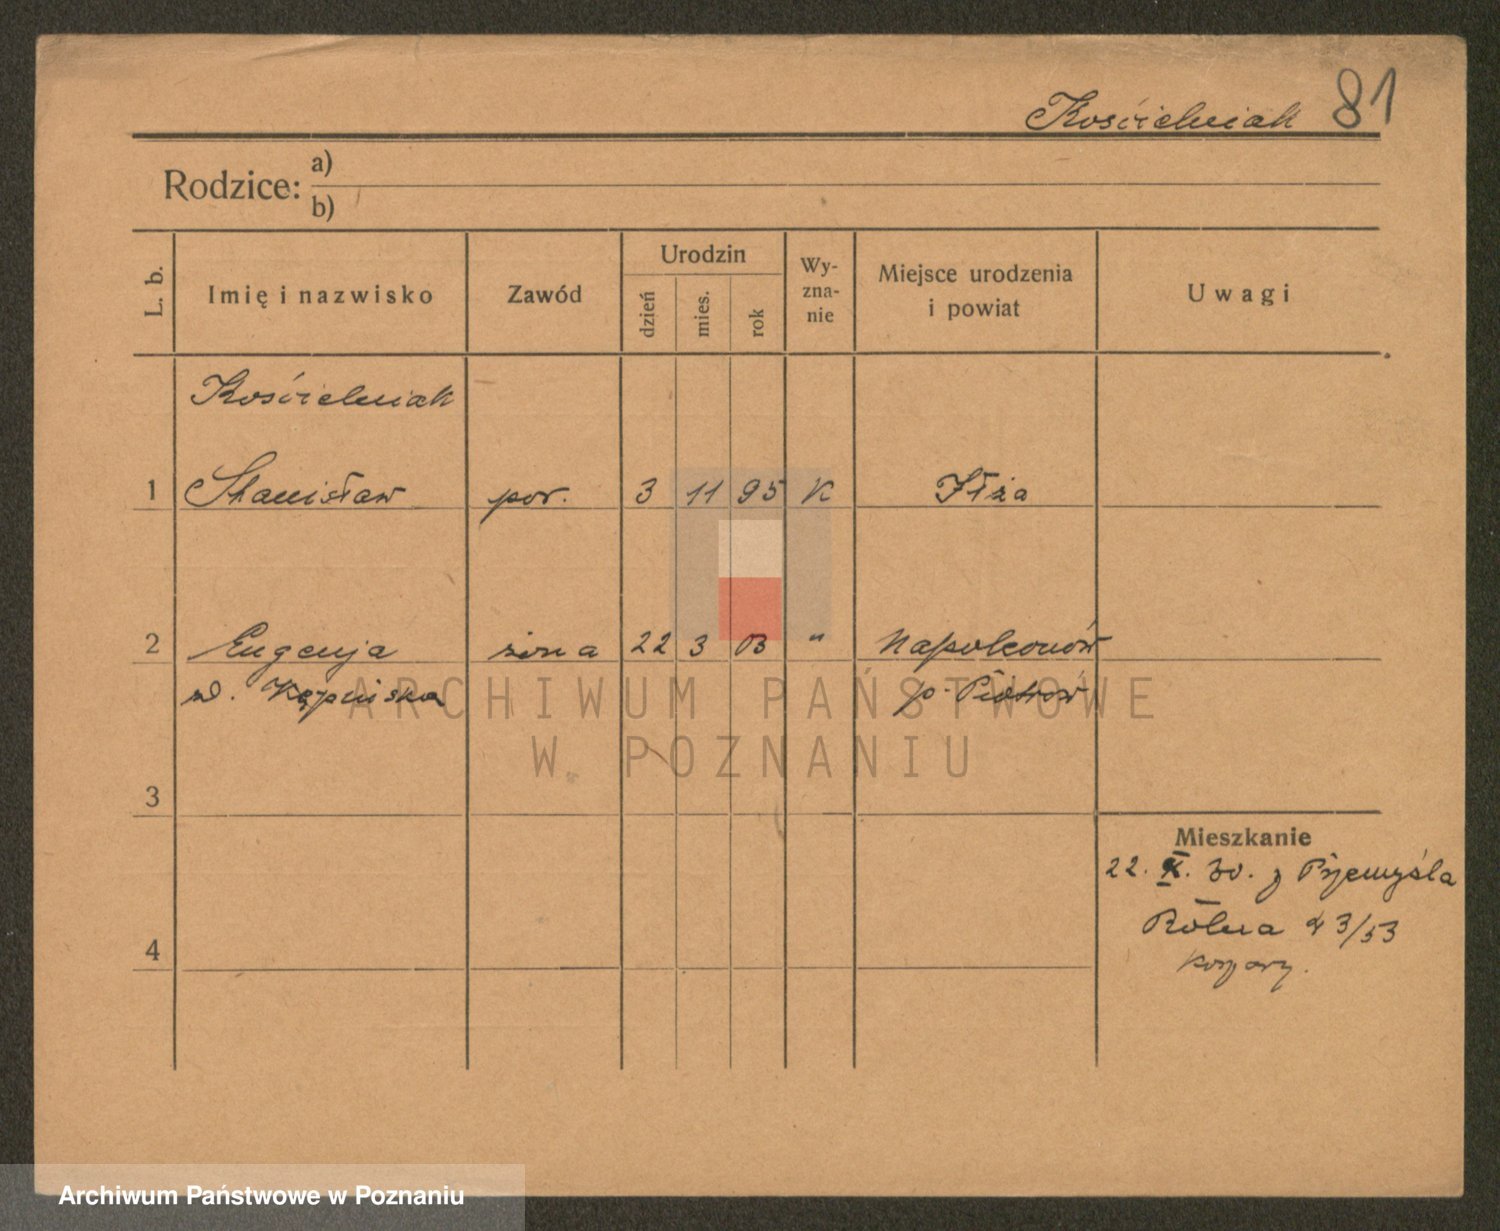 Kościelniak 81
Rodzice: a)
b)
L. b.
Imię i nazwisko
Zawód
Urodzin
dzień
mies.
rok
Wy-
zna-
nie
Miejsce urodzenia
i powiat
Uwagi
Kościelniak
1 Stanisław por. 3 11 95 K Iłża
2 Eugenja żona 22 3 03 " Napoleonów
z d. Kępińska p. Piotrów
3
Mieszkanie
22. X. 30. z Przemyśla
Rolna 43/53
koszary.
4
ARCHIWUM PAŃSTWOWE
W POZNANIU
Archiwum Państwowe w Poznaniu